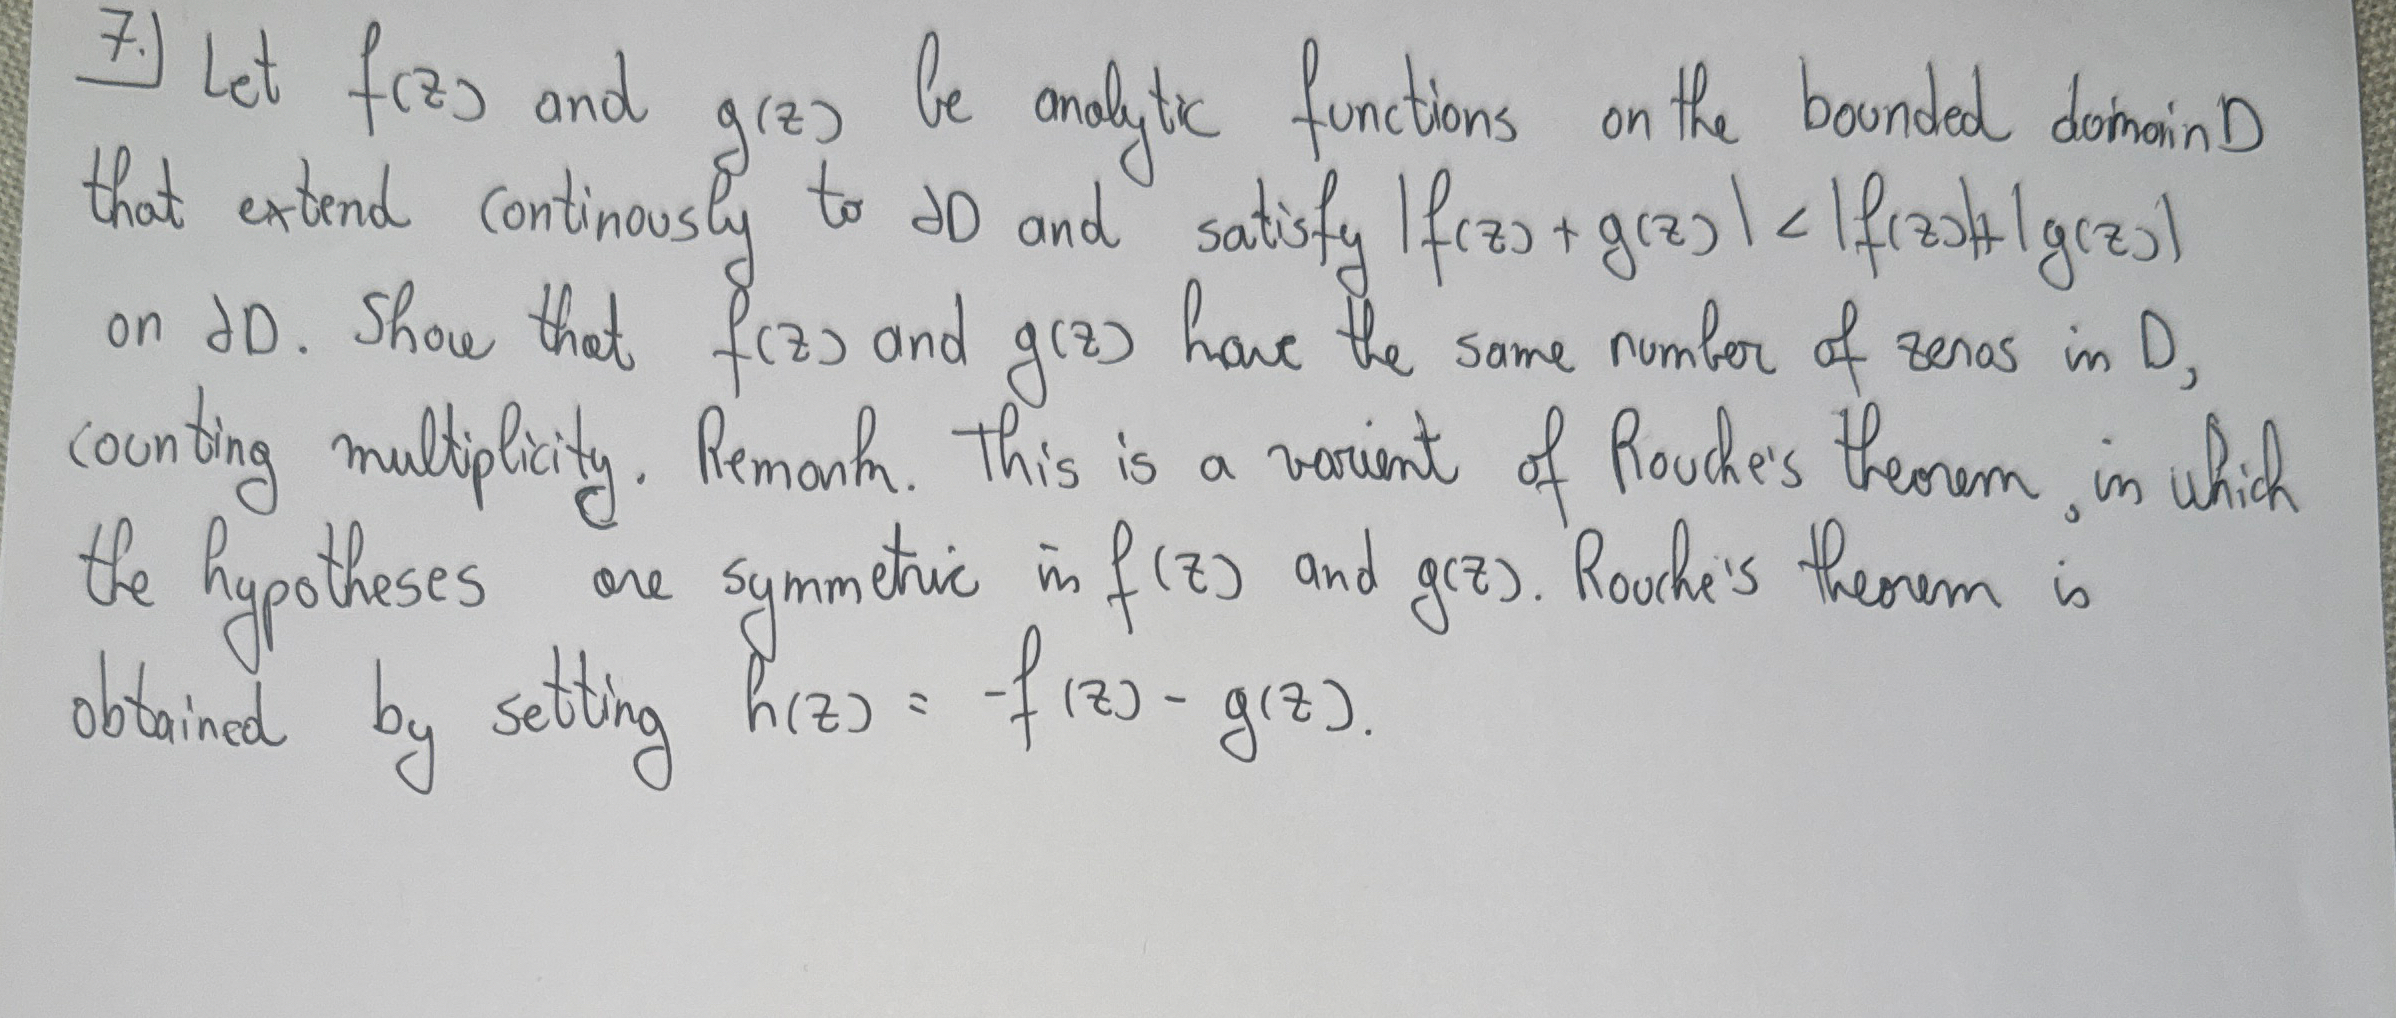 7.) Let f(z) and g(z) be analytic functions on the bounded domain D
that extend continously to ∂D and satisfy |f(z) + g(z)| < |f(z)|+|g(z)|
on ∂D. Show that f(z) and g(z) have the same number of zeros in D,
counting multiplicity. Remark. This is a varient of Rouche's theorem, in which
the hypotheses are symmetric in f(z) and g(z). Rouche's theorem is
obtained by setting h(z) = -f(z) - g(z).